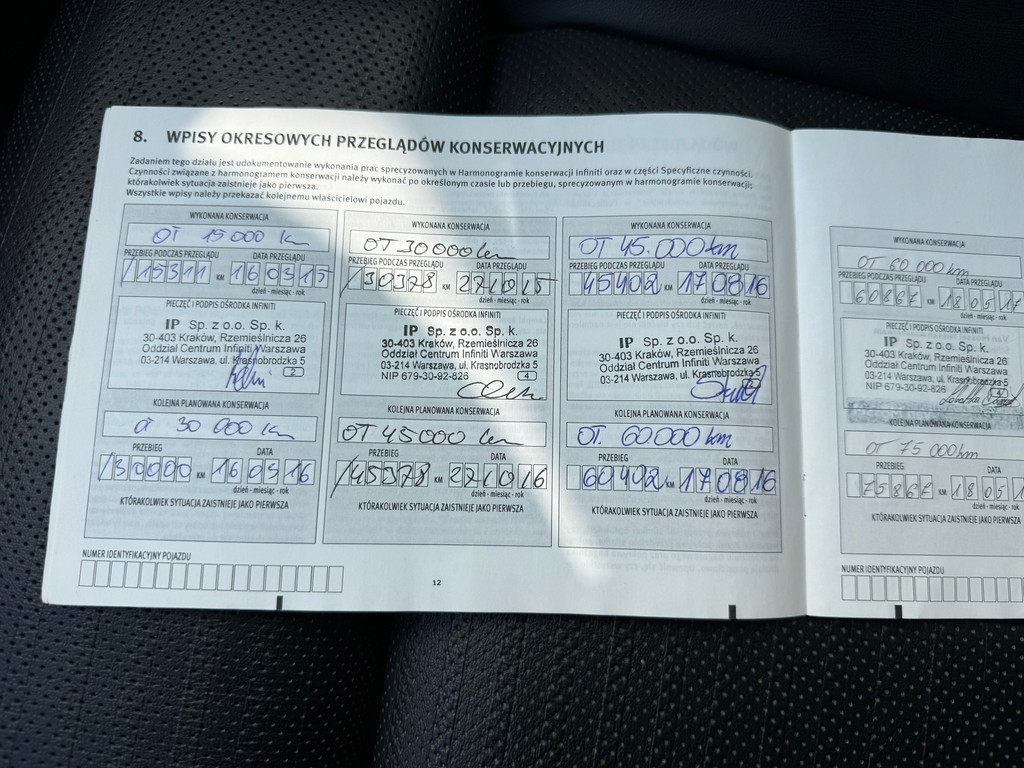 8. WPISY OKRESOWYCH PRZEGLĄDÓW KONSERWACYJNYCH
Zadaniem tego działu jest udokumentowanie wykonania prac sprecyzowanych w Harmonogramie konserwacji Infiniti oraz w części Specyficzne czynności.
Czynności związane z harmonogramem konserwacji należy wykonać po określonym czasie lub przebiegu, sprecyzowanym w harmonogramie konserwacji;
którakolwiek sytuacja zaistnieje jako pierwsza.
Wszystkie wpisy należy przekazać kolejnemu właścicielowi pojazdu.
WYKONANA KONSERWACJA
OT 15 000 km
PRZEBIEG PODCZAS PRZEGLĄDU DATA PRZEGLĄDU
/15311 KM 160315
dzień - miesiąc - rok
PIECZĘĆ I PODPIS OŚRODKA INFINITI
IP Sp. z o.o. Sp. k.
30-403 Kraków, Rzemieślnicza 26
Oddział Centrum Infiniti Warszawa
03-214 Warszawa, ul. Krasnobrodzka 5
2
KOLEJNA PLANOWANA KONSERWACJA
OT 30 000 km
PRZEBIEG DATA
/30000 KM 160316
dzień - miesiąc - rok
KTÓRAKOLWIEK SYTUACJA ZAISTNIEJE JAKO PIERWSZA
WYKONANA KONSERWACJA
OT 30 000 km
PRZEBIEG PODCZAS PRZEGLĄDU DATA PRZEGLĄDU
/30378 KM 221015
dzień - miesiąc - rok
PIECZĘĆ I PODPIS OŚRODKA INFINITI
IP Sp. z o.o. Sp. k.
30-403 Kraków, Rzemieślnicza 26
Oddział Centrum Infiniti Warszawa
03-214 Warszawa, ul. Krasnobrodzka 5
NIP 679-30-92-826
4
KOLEJNA PLANOWANA KONSERWACJA
OT 45 000 km
PRZEBIEG DATA
/45378 KM 221016
dzień - miesiąc - rok
KTÓRAKOLWIEK SYTUACJA ZAISTNIEJE JAKO PIERWSZA
WYKONANA KONSERWACJA
OT 45.000 km
PRZEBIEG PODCZAS PRZEGLĄDU DATA PRZEGLĄDU
45402 KM 170816
dzień - miesiąc - rok
PIECZĘĆ I PODPIS OŚRODKA INFINITI
IP Sp. z o.o. Sp. k.
30-403 Kraków, Rzemieślnicza 26
Oddział Centrum Infiniti Warszawa
03-214 Warszawa, ul. Krasnobrodzka 5
KOLEJNA PLANOWANA KONSERWACJA
OT. 60 000 km
PRZEBIEG DATA
60402 KM 170816
dzień - miesiąc - rok
KTÓRAKOLWIEK SYTUACJA ZAISTNIEJE JAKO PIERWSZA
NUMER IDENTYFIKACYJNY POJAZDU
12
WYKONANA KONSERWACJA
OT 60 000 km
PRZEBIEG PODCZAS PRZEGLĄDU DATA PRZEGLĄDU
60867 KM 180517
dzień - miesiąc - rok
PIECZĘĆ I PODPIS OŚRODKA INFINITI
IP Sp. z o.o. Sp. k.
30-403 Kraków, Rzemieślnicza 26
Oddział Centrum Infiniti Warszawa
03-214 Warszawa, ul. Krasnobrodzka 5
NIP 679-30-92-826
4
KOLEJNA PLANOWANA KONSERWACJA
OT 75 000km
PRZEBIEG DATA
75867 KM 18051
dzień - miesiąc - rok
KTÓRAKOLWIEK SYTUACJA ZAISTNIEJE JAKO PIERWSZA
NUMER IDENTYFIKACYJNY POJAZDU